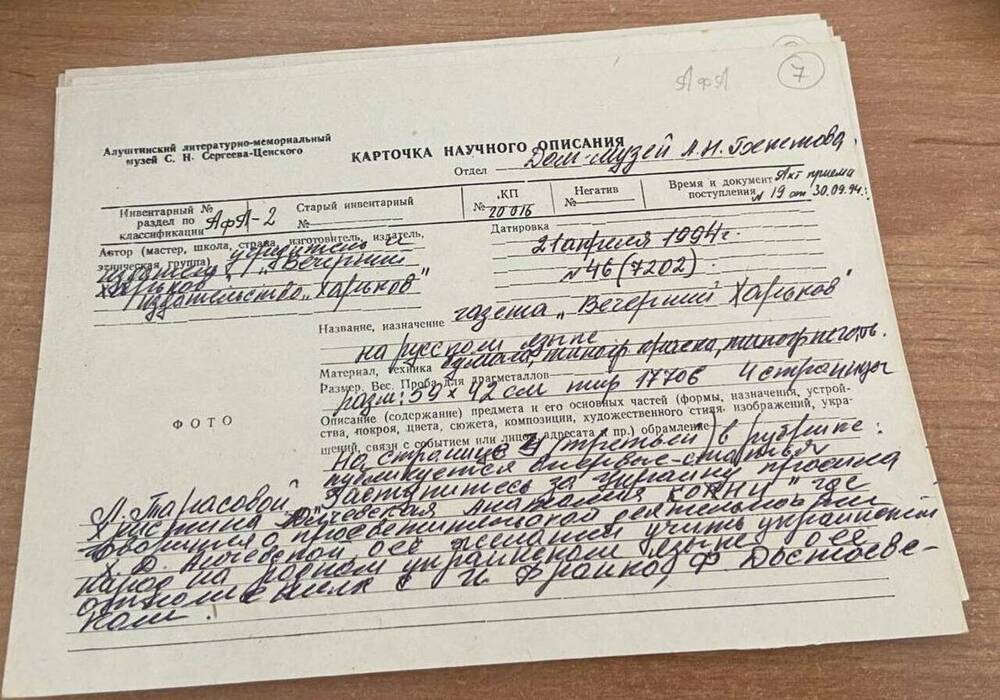 АфА
7
Алуштинский литературно-мемориальный
музей С. Н. Сергеева-Ценского
КАРТОЧКА НАУЧНОГО ОПИСАНИЯ
Отдел Дом-музей А.Н. Бекетова.
Инвентарный №
раздел по
классификации АфА-2
Старый инвентарный
№
КП
№ 20016
Негатив
№
Время и документ Акт приема
поступления № 19 от 30.09.94г.
Автор (мастер, школа, страна, изготовитель, издатель,
этническая группа) учредитель и
издатель "Вечерний
Харьков"
Издательство "Харьков"
Датировка
21 апреля 1994 г.
№ 46 (7202)
Название, назначение газета "Вечерний Харьков"
на русском языке
Материал, техника бумага, типогр краска, типогр печать.
Размер. Вес. Проба для драгметаллов
разм: 59 х 42 см тир 17706 4 страницы
Описание (содержание) предмета и его основных частей (формы, назначения, устрой-
ства, покроя, цвета, сюжета, композиции, художественного стиля, изображений, укра-
шений, связи с событием или лицом, адресата и пр.) обрамление
ФОТО
На странице (третьей) в рубрике:
публикуется впервые - статья
Л. Тарасовой "Заступитесь за Украину просила
Христина Алчевская Анатолия Кони" где
говорится о просветительской деятельности
Х. Д. Алчевской, о её желании учить украинский
народ на родном украинском языке, о её
с И Франко, Ф Достоевс-
ким.